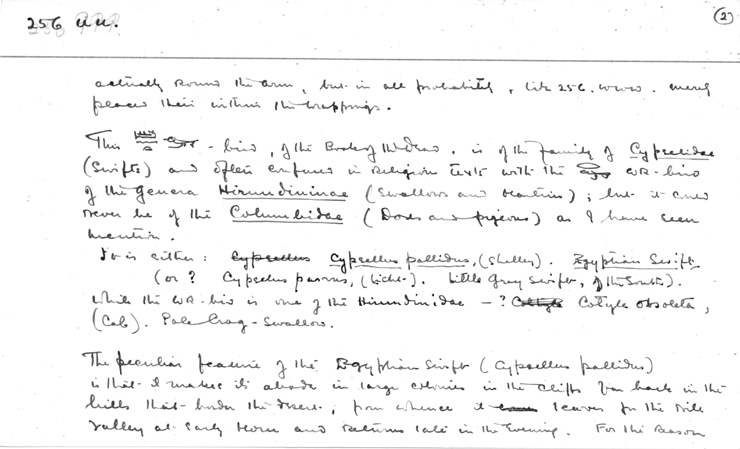 256 uu.
(2)
actually round the arm, but in all probability, like 256. www. merely
placed there within the wrappings.
This - bird, of the Book of the Dead. is of the family of Cypselidae
(Swifts) and often confused in Religion texts with the WR-bird
of the genera Hirundininae (Swallows and Martins); but it could
never be of the Columbidae (Doves and pigeons) as I have seen
mention.
It is either: Cypsellus pallidus, (Shelley). Egyptian Swift.
(or ? Cypselus parvus, (Licht.). Little Gray Swift, of the South).
while the WR-bird is one of the Hirundinidae - ? Cotyle obsoleta,
(Cab). Pale Crag-Swallow.
The peculiar feature of the Egyptian Swift (Cypsellus pallidus)
is that it makes its abode in large colonies in the cliffs far back in the
hills that border the desert; from whence it leaves for the Nile
Valley at early Morn and returns late in the Evening. For the reason